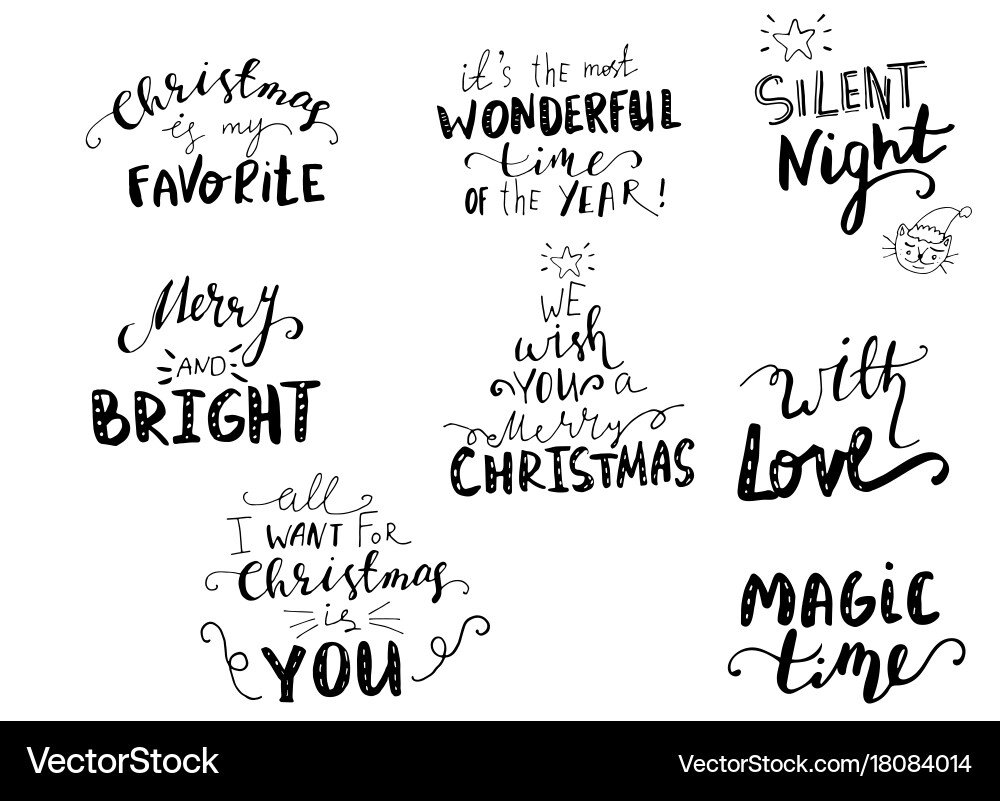 Christmas
is my
FAVORITE
it's the most
WONDERFUL
time
OF the YEAR!
SILENT
Night
Merry
AND
BRIGHT
WE
wish
YOU a
Merry
CHRISTMAS
with
Love
all
I WANT FOR
Christmas
is
YOU
MAGIC
time
VectorStock
VectorStock.com/18084014